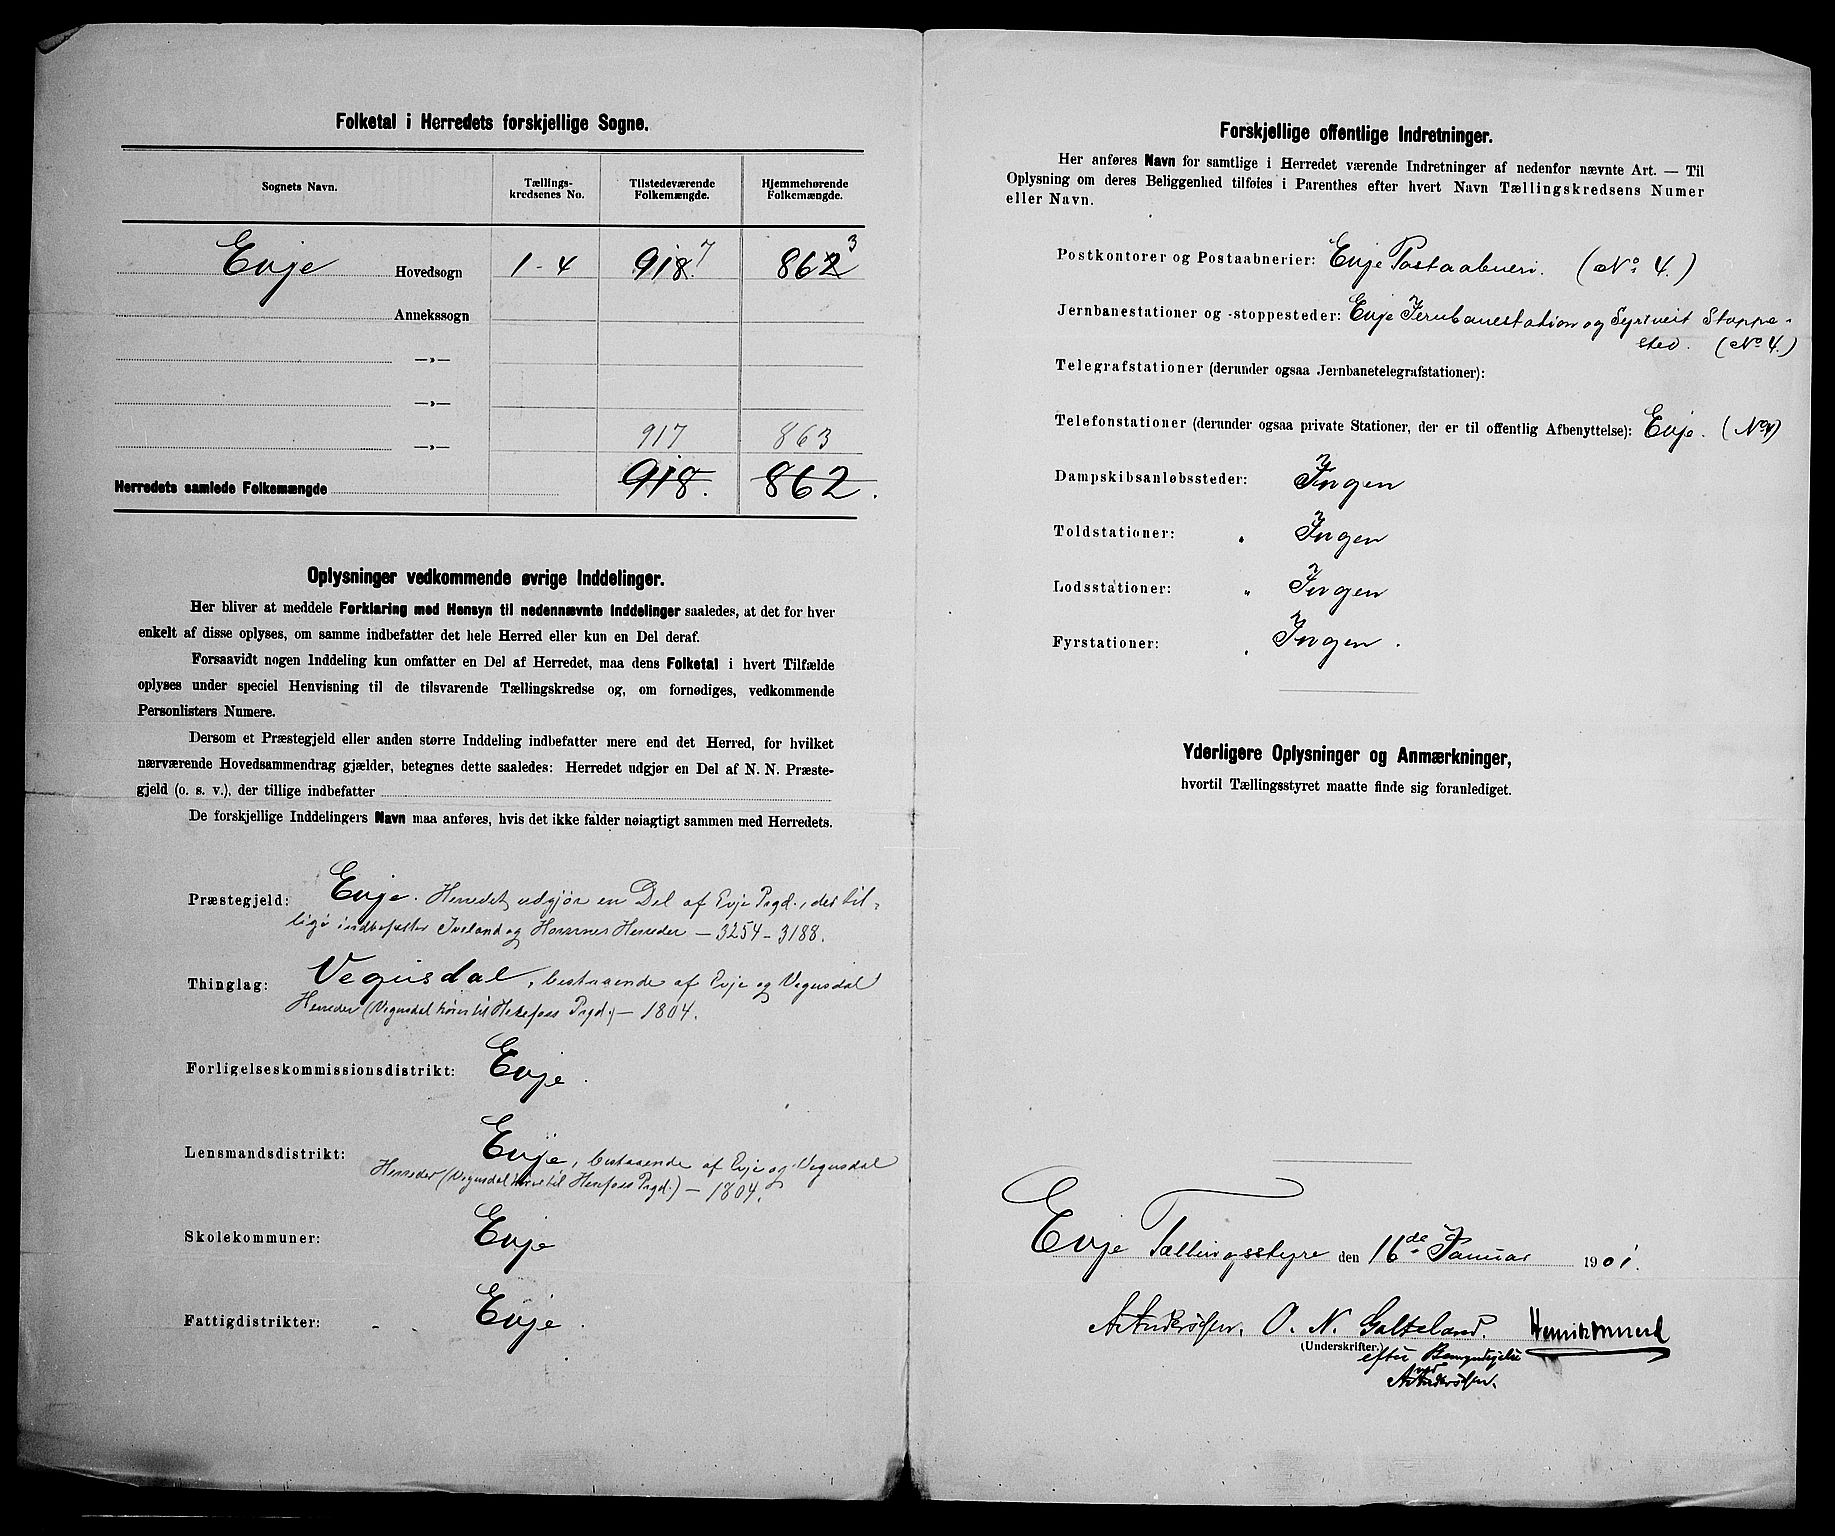 Folketal i Herredets forskjellige Sogne.
Sognets Navn.
Tællings-
kredsenes No.
Tilstedeværende
Folkemængde.
Hjemmehørende
Folkemængde.
Evje Hovedsogn 1-4 918 7 862 3
Annekssogn
—»—
—»—
—»— 917 863
Herredets samlede Folkemængde 918. 862.
Oplysninger vedkommende øvrige Inddelinger.
Her bliver at meddele Forklaring med Hensyn til nedennævnte Inddelinger saaledes, at det for hver
enkelt af disse oplyses, om samme indbefatter det hele Herred eller kun en Del deraf.
Forsaavidt nogen Inddeling kun omfatter en Del af Herredet, maa dens Folketal i hvert Tilfælde
oplyses under speciel Henvisning til de tilsvarende Tællingskredse og, om fornødiges, vedkommende
Personlisters Numere.
Dersom et Præstegjeld eller anden større Inddeling indbefatter mere end det Herred, for hvilket
nærværende Hovedsammendrag gjælder, betegnes dette saaledes: Herredet udgjør en Del af N. N. Præste-
gjeld (o. s. v.), der tillige indbefatter
De forskjellige Inddelingers Navn maa anføres, hvis det ikke falder nøiagtigt sammen med Herredets.
Præstegjeld: Evje. Herredet udgjør en Del af Evje Prgd., der til-
lige indbefatter Iveland og Hornnes Herreder — 3254 - 3188.
Thinglag: Vegusdal, bestaaende af Evje og Vegusdal
Herreder (Vegusdal hører til Herefoss Prgd.) — 1804.
Forligelseskommissionsdistrikt: Evje.
Lensmandsdistrikt: Evje, bestaaende af Evje og Vegusdal
Herreder (Vegusdal hører til Herefoss Prgd.) — 1804.
Skolekommuner: Evje
Fattigdistrikter: Evje.
Forskjellige offentlige Indretninger.
Her anføres Navn for samtlige i Herredet værende Indretninger af nedenfor nævnte Art. — Til
Oplysning om deres Beliggenhed tilføies i Parenthes efter hvert Navn Tællingskredsens Numer
eller Navn.
Postkontorer og Postaabnerier: Evje Postaabneri. (No. 4.)
Jernbanestationer og -stoppesteder: Evje Jernbanestation og Syrtveit Stoppe-
sted. (No 4.)
Telegrafstationer (derunder ogsaa Jernbanetelegrafstationer):
Telefonstationer (derunder ogsaa private Stationer, der er til offentlig Afbenyttelse): Evje. (No 4)
Dampskibsanløbssteder: Ingen
Toldstationer: „ Ingen
Lodsstationer: „ Ingen
Fyrstationer: „ Ingen.
Yderligere Oplysninger og Anmærkninger,
hvortil Tællingsstyret maatte finde sig foranlediget.
Evje Tællingsstyre den 16de Januar 1901.
A Andersen. O. N. Galteland.
(Underskrifter.)
efter Bemyndigelse
ved
A Andersen.